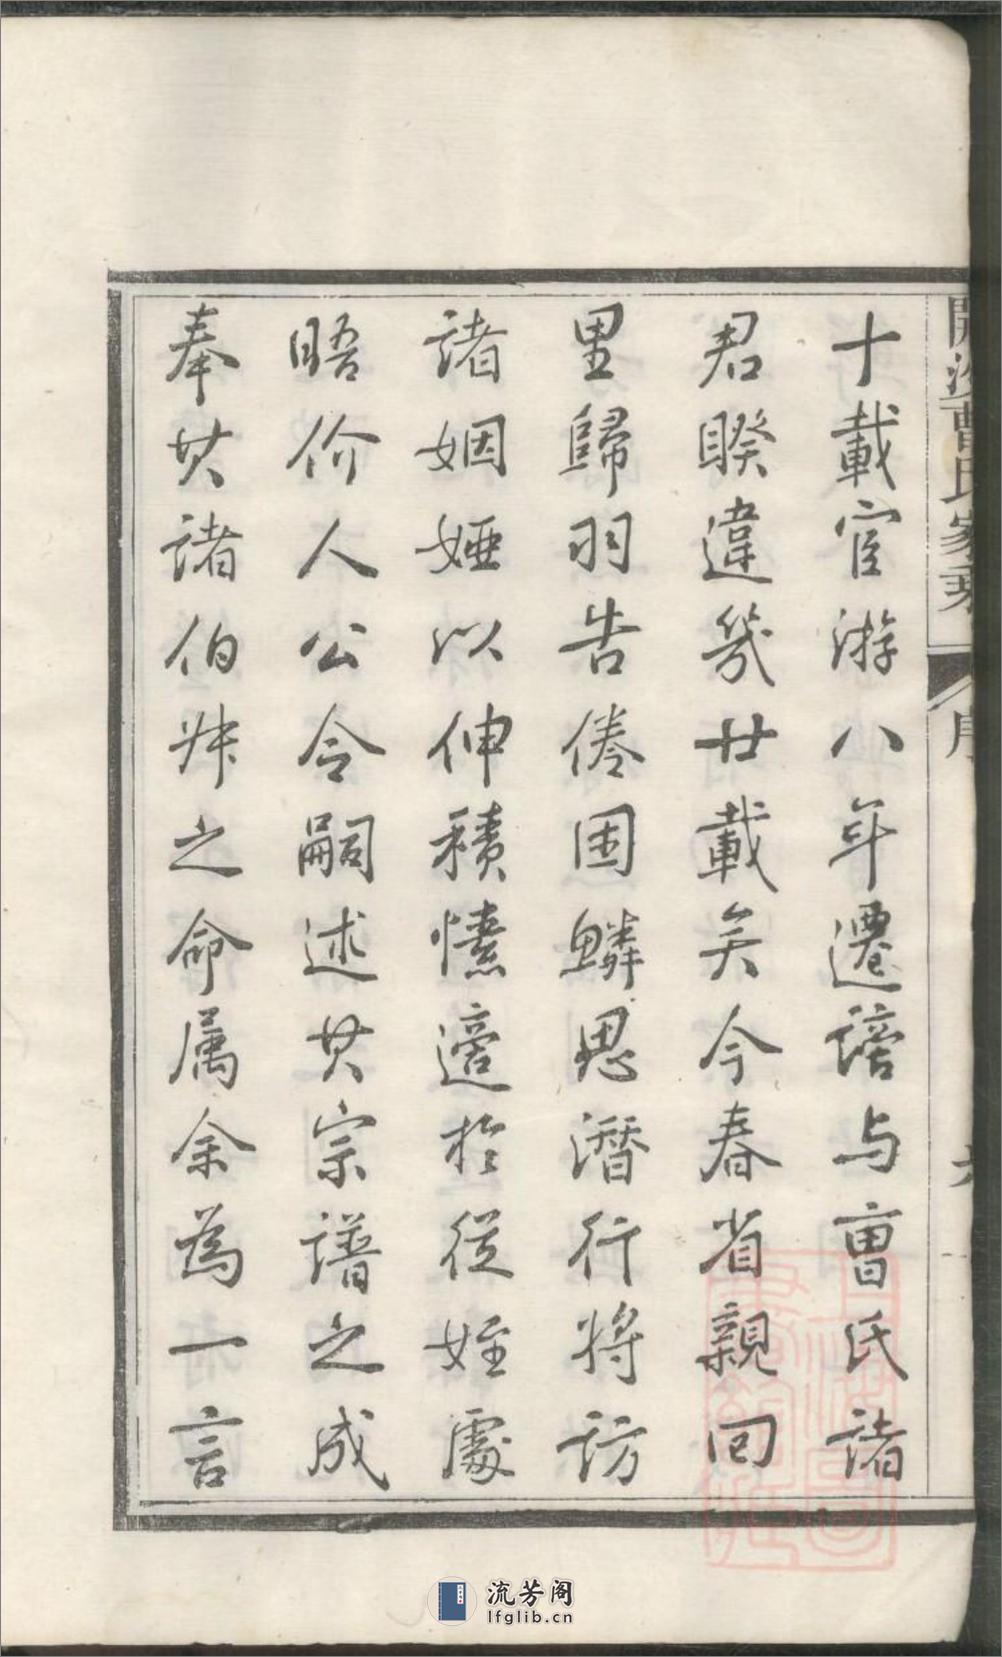 開沙曹氏家乘
序
十載宦游八年遷謗与曹氏諸
君睽違幾廿載矣今春省親回
里歸羽告倦困鱗思潛行将訪
諸姻婭以伸積愫適於從姪處
晤价人公令嗣述其宗譜之成
奉其諸伯叔之命属余為一言
流芳阁
lfglib.cn